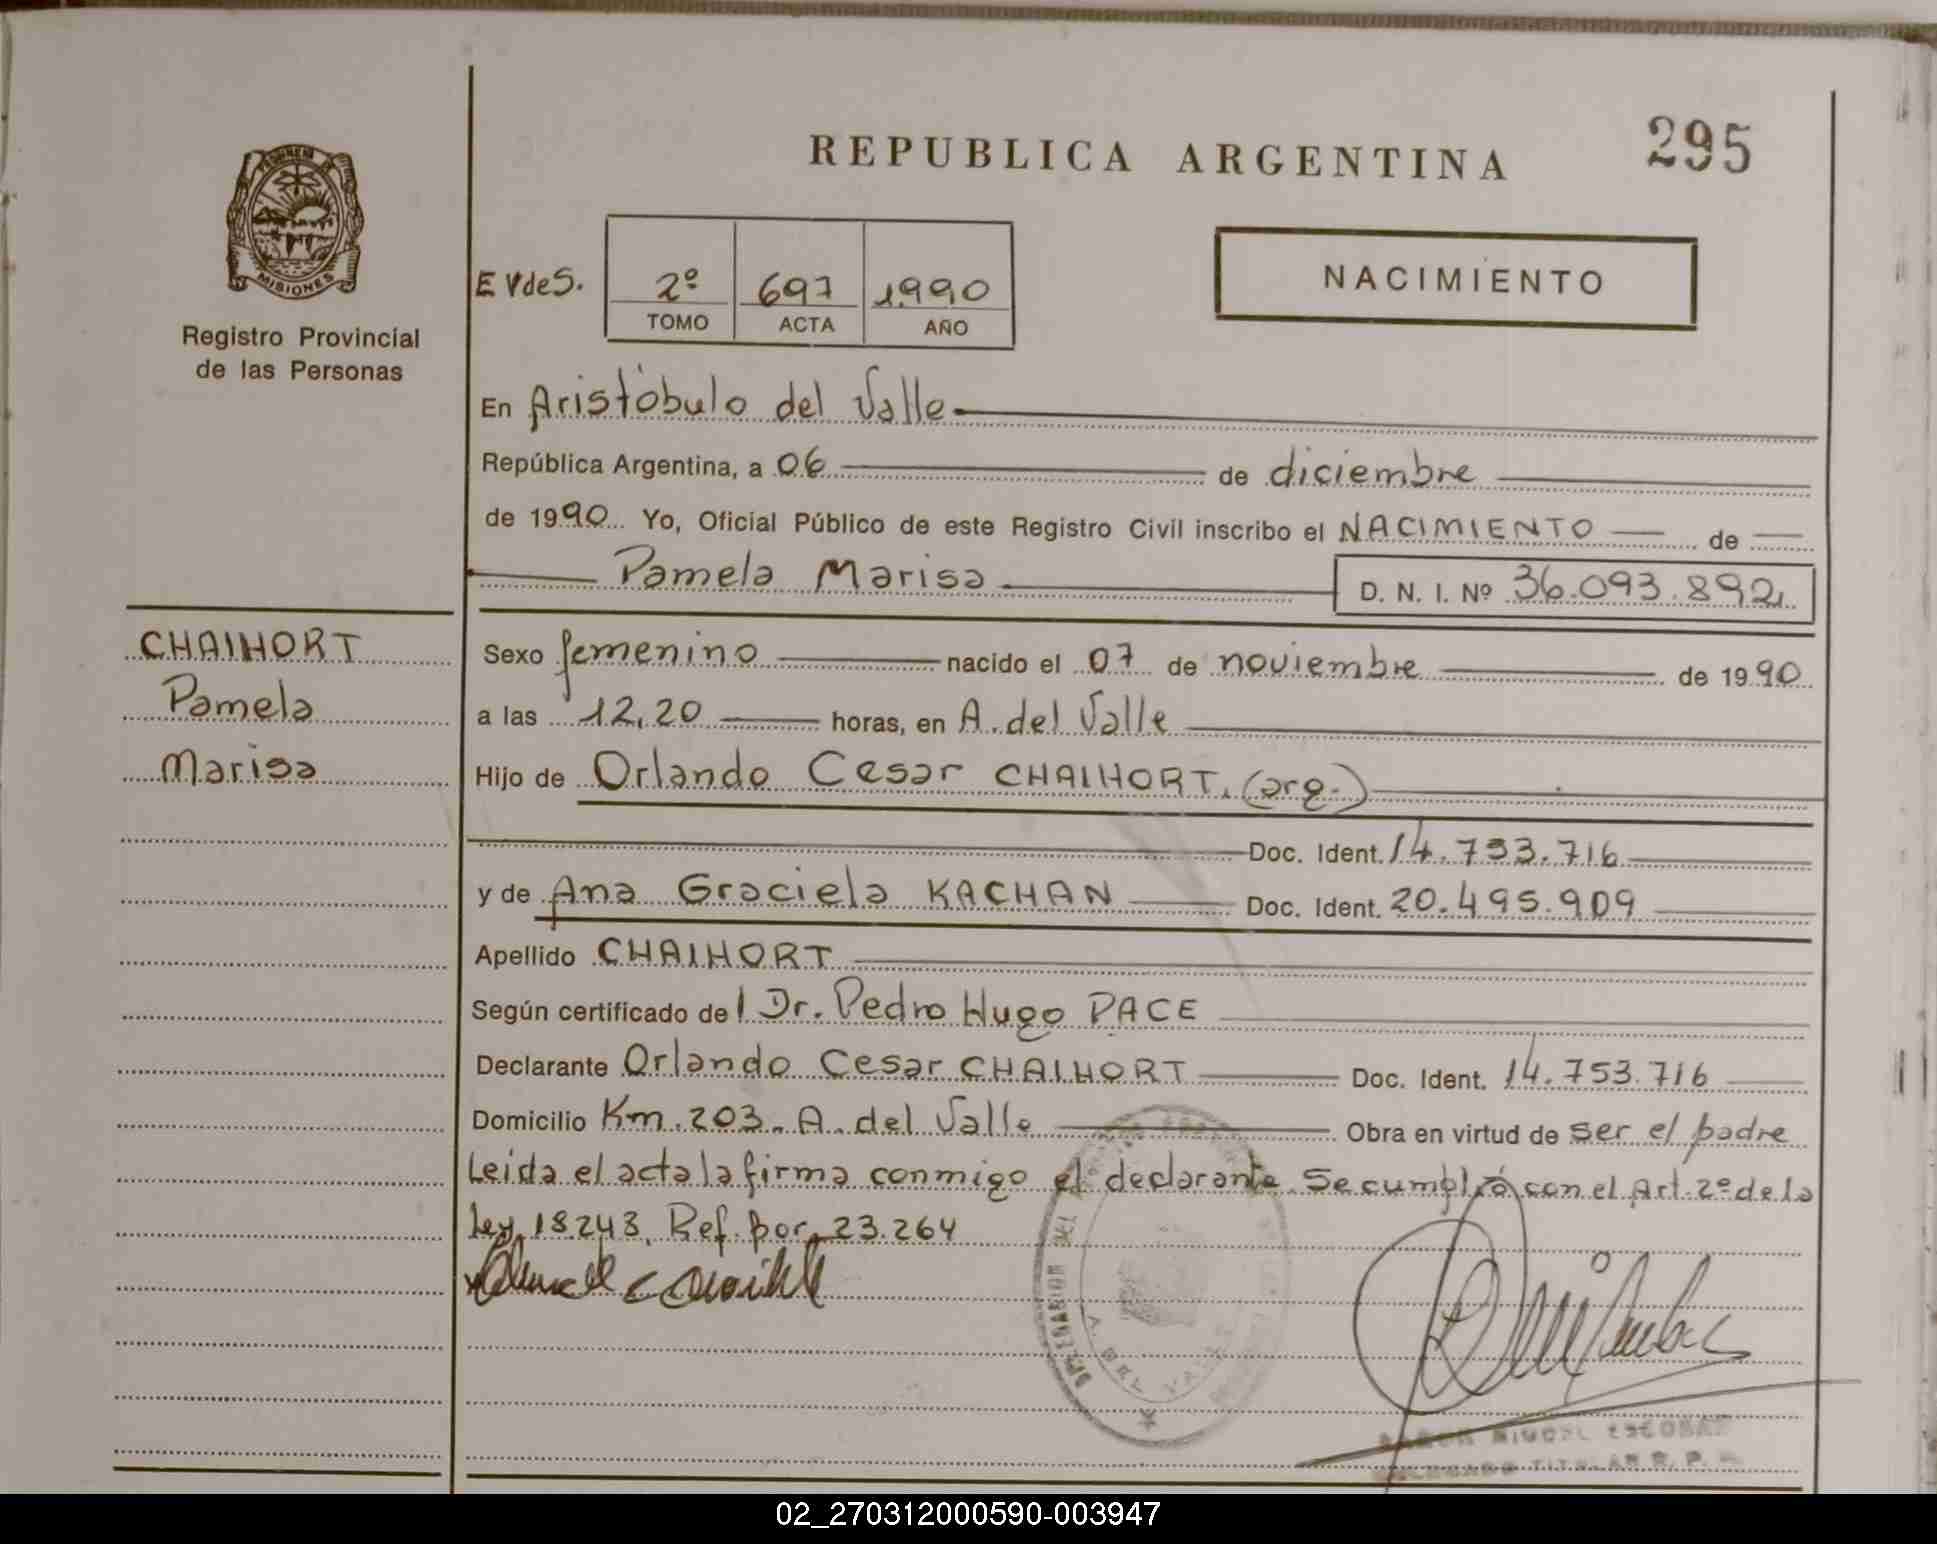 REPUBLICA ARGENTINA
295
MISIONES
Registro Provincial
de las Personas
E V de S.
2º 697 1.990
TOMO ACTA AÑO
NACIMIENTO
En Aristóbulo del Valle
República Argentina, a 06 de diciembre
de 1990 Yo, Oficial Público de este Registro Civil inscribo el NACIMIENTO de
Pamela Marisa D. N. I. Nº 36.093.892
CHAIHORT
Pamela
Marisa
Sexo femenino nacido el 07 de noviembre de 1990
a las 12,20 horas, en A. del Valle
Hijo de Orlando Cesar CHAIHORT. (arg.)
Doc. Ident. 14.753.716
y de Ana Graciela KACHAN Doc. Ident. 20.495.909
Apellido CHAIHORT
Según certificado del Dr. Pedro Hugo PACE
Declarante Orlando Cesar CHAIHORT Doc. Ident. 14.753.716
Domicilio Km. 203. A. del Valle Obra en virtud de ser el padre
Leída el acta la firma conmigo el declarante. Se cumplió con el Art. 2º de la
Ley 18.248. Ref. por 23.264
A. DEL VALLE
MIGUEL ESCOBAR
DELEGADO TITULAR R. P.
02_270312000590-003947